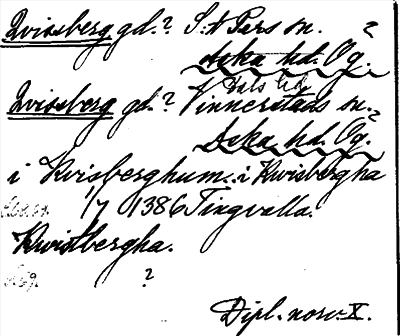 Qvissberg gd.? S:t Pers sn. ?
Aska hd. Ög.
Dals hd
Qvissberg gd.? Vinnerstads sn. ?
Aska hd. Ög.
i Kwisberghum.. i Kwisbergha
1/7 1386 Tingvalla.
Kwistbergha.
?
Dipl. norv. X.